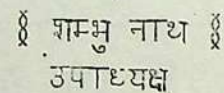 शम्भु नाथ
उपाध्यक्ष